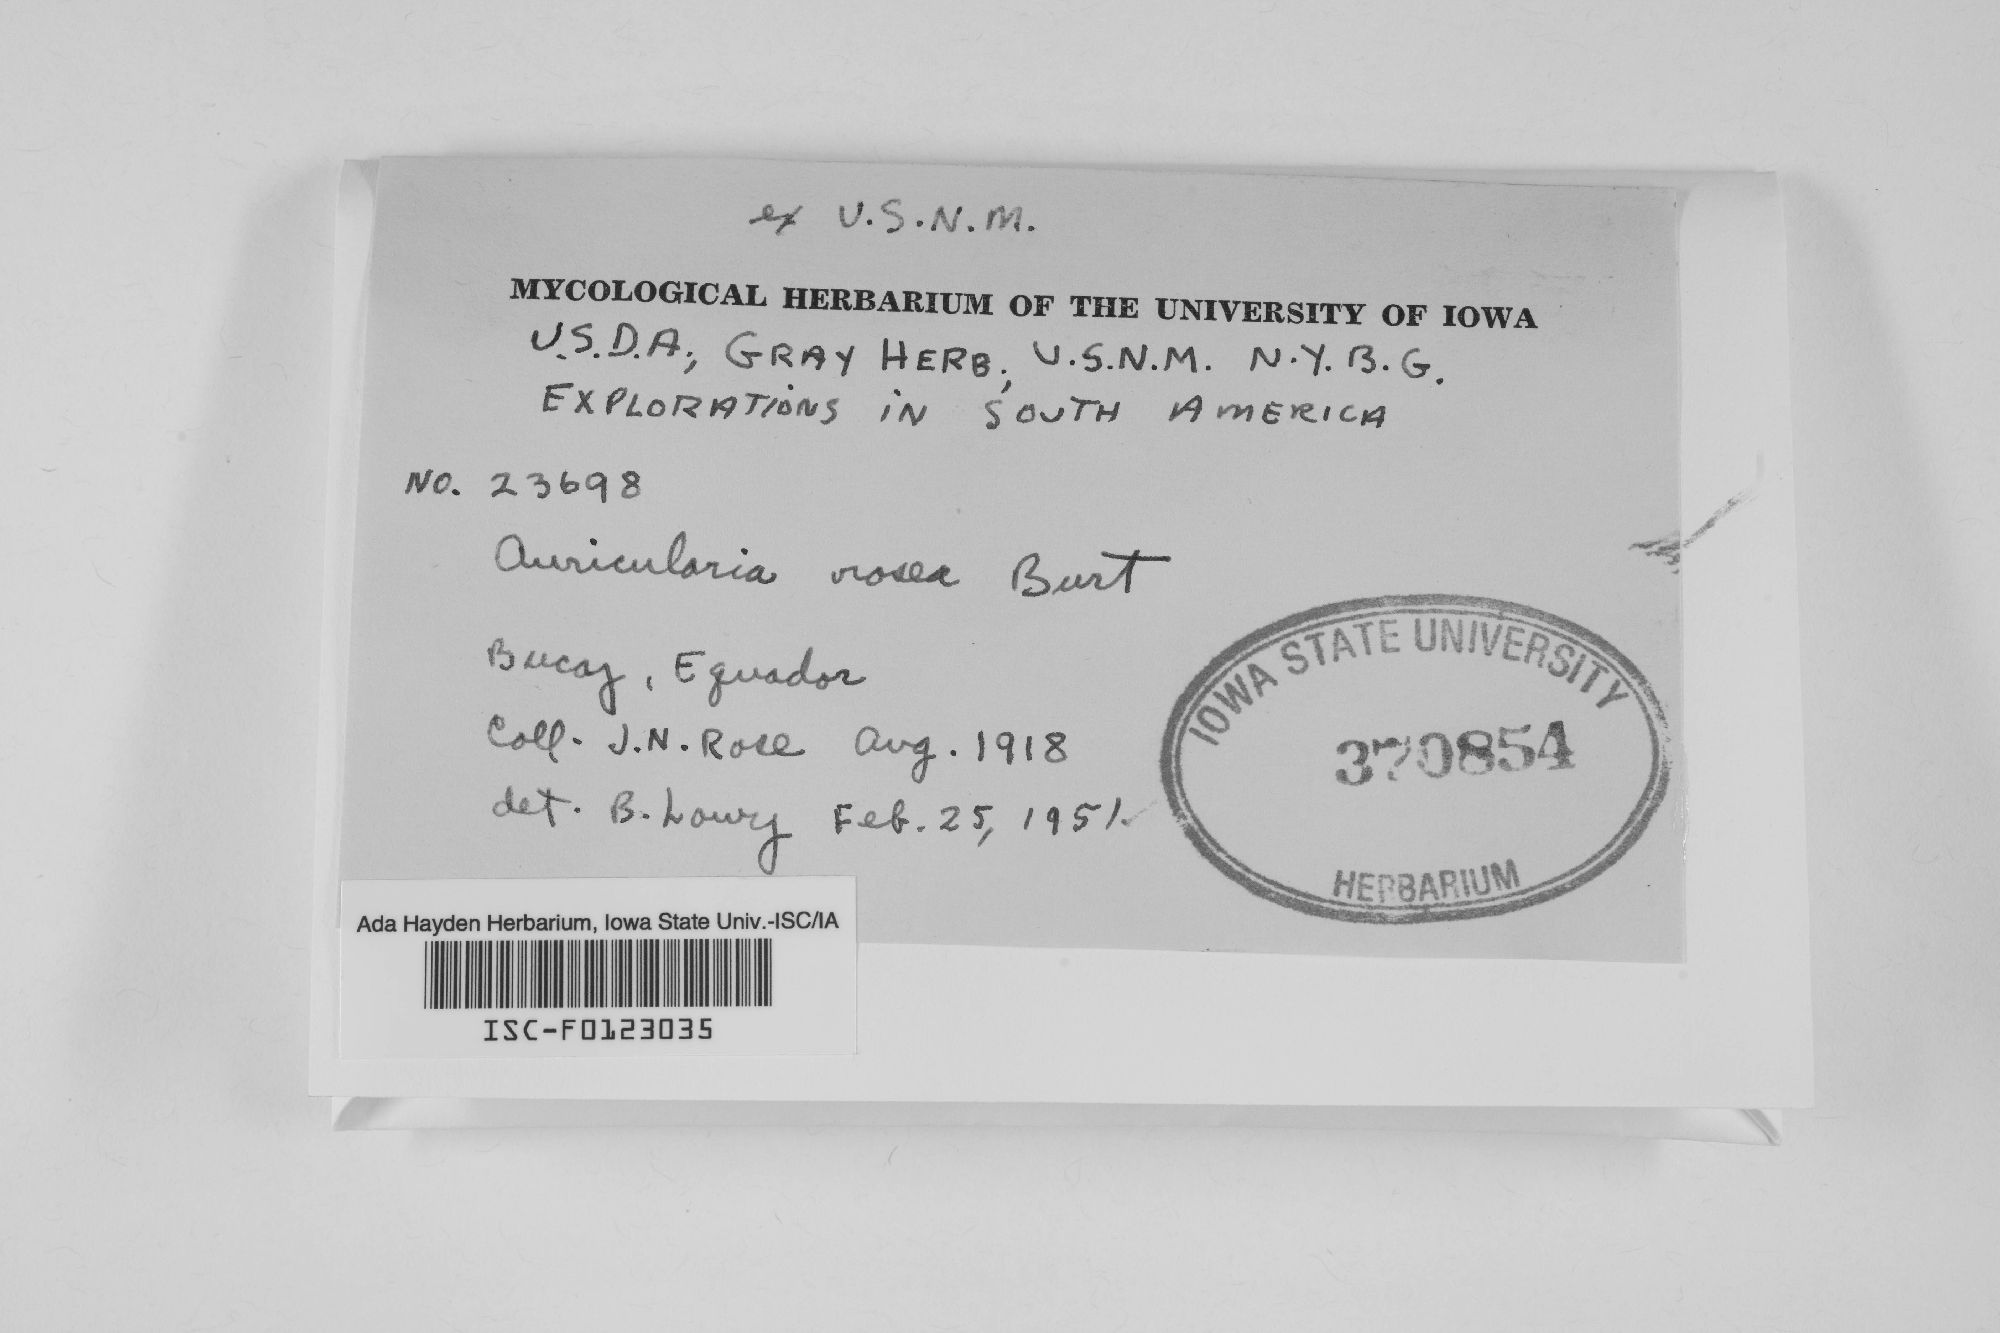 ex U.S.N.M.
MYCOLOGICAL HERBARIUM OF THE UNIVERSITY OF IOWA
U.S.D.A., GRAY HERB., U.S.N.M. N.Y.B.G.
EXPLORATIONS IN SOUTH AMERICA
NO. 23698
Auricularia rosea Burt
Bucay, Equador
Coll. J.N. Rose Aug. 1918
det. B. Lowy Feb. 25, 1951.
IOWA STATE UNIVERSITY
370854
HERBARIUM
Ada Hayden Herbarium, Iowa State Univ.-ISC/IA
ISC-F0123035